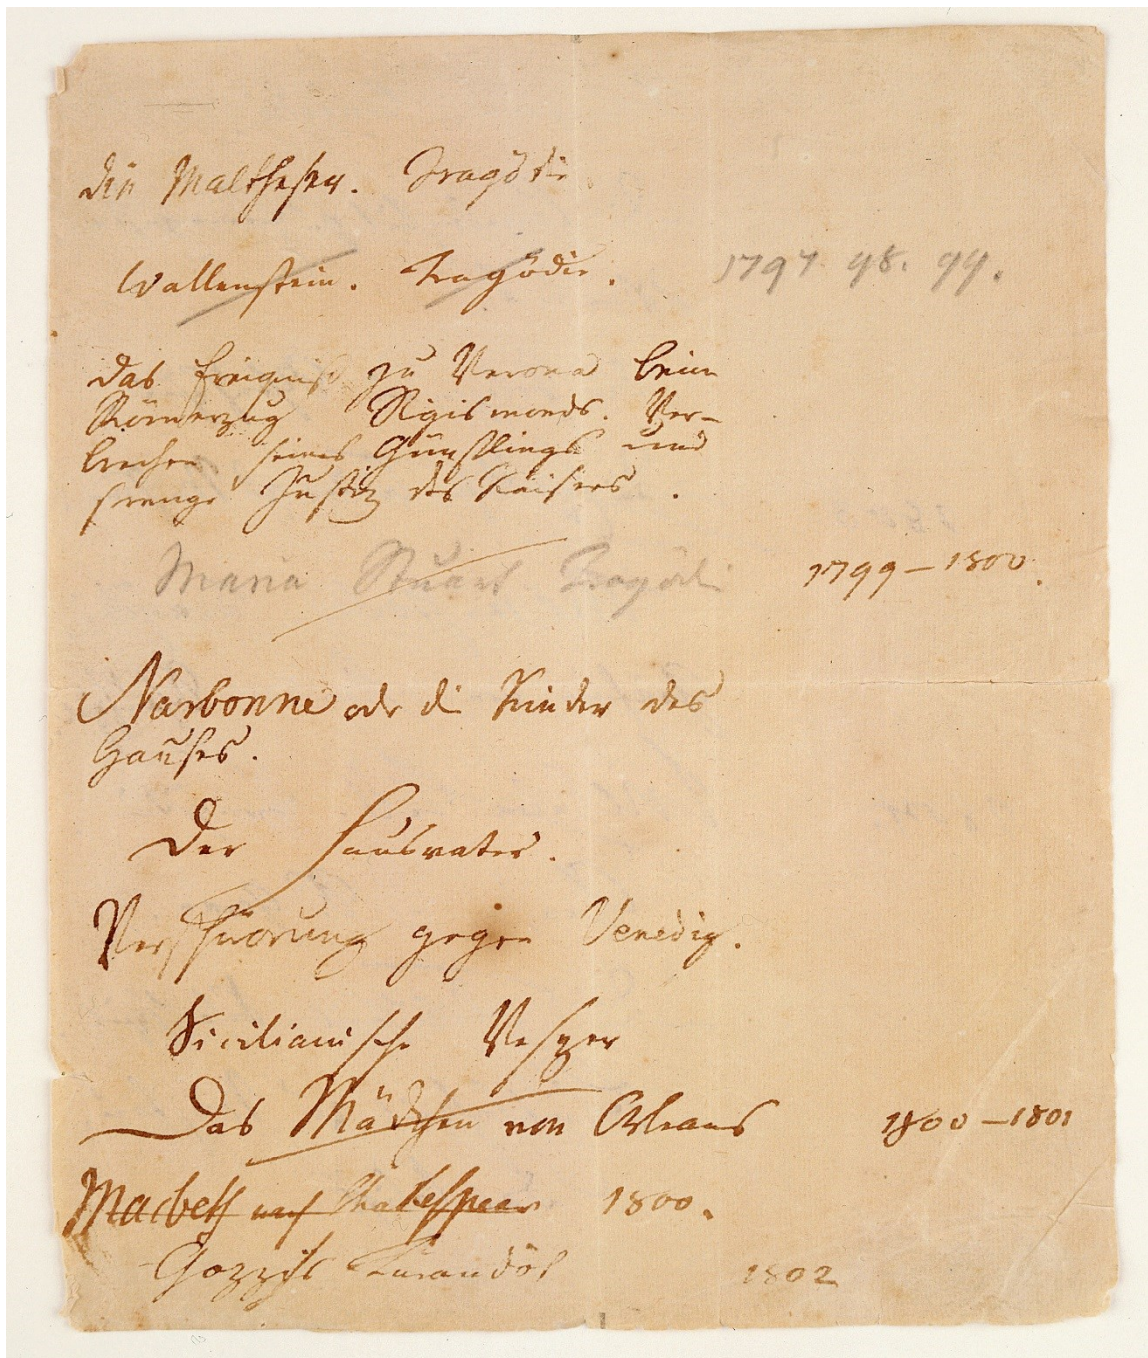 Die Maltheser. Tragödie
Wallenstein. Tragödie. 1797. 98. 99.
Das Ereigniß zu Verona beim
Römerzug Sigismonds. Ver-
brechen seines Günstlings und
strenge Justiz des Kaisers.
Maria Stuart Tragödie 1799 – 1800.
Narbonne oder die Kinder des
Hauses.
Der Hausvater.
Verschwörung gegen Venedig.
Sicilianische Vesper
Das Mädchen von Orleans 1800 – 1801
Macbeth nach Shakespear 1800.
Gozzis Turandot 1802